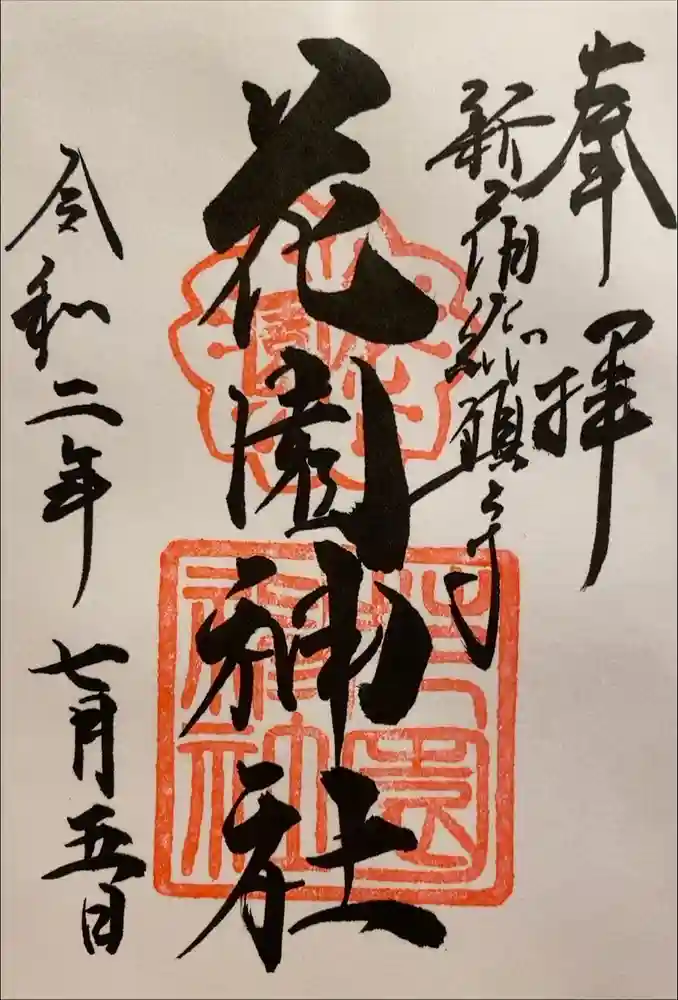 奉拝
新宿総鎮守
花園神社
令和二年七月五日
花園神社